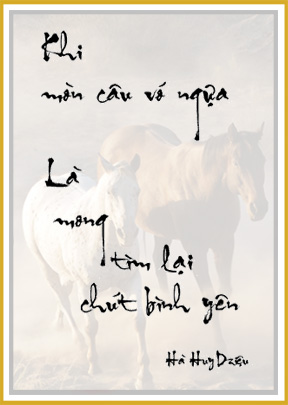 Khi
mòn câu vó ngựa
Là
mong
tìm lại
chút bình yên
Hà Huy Dziệu